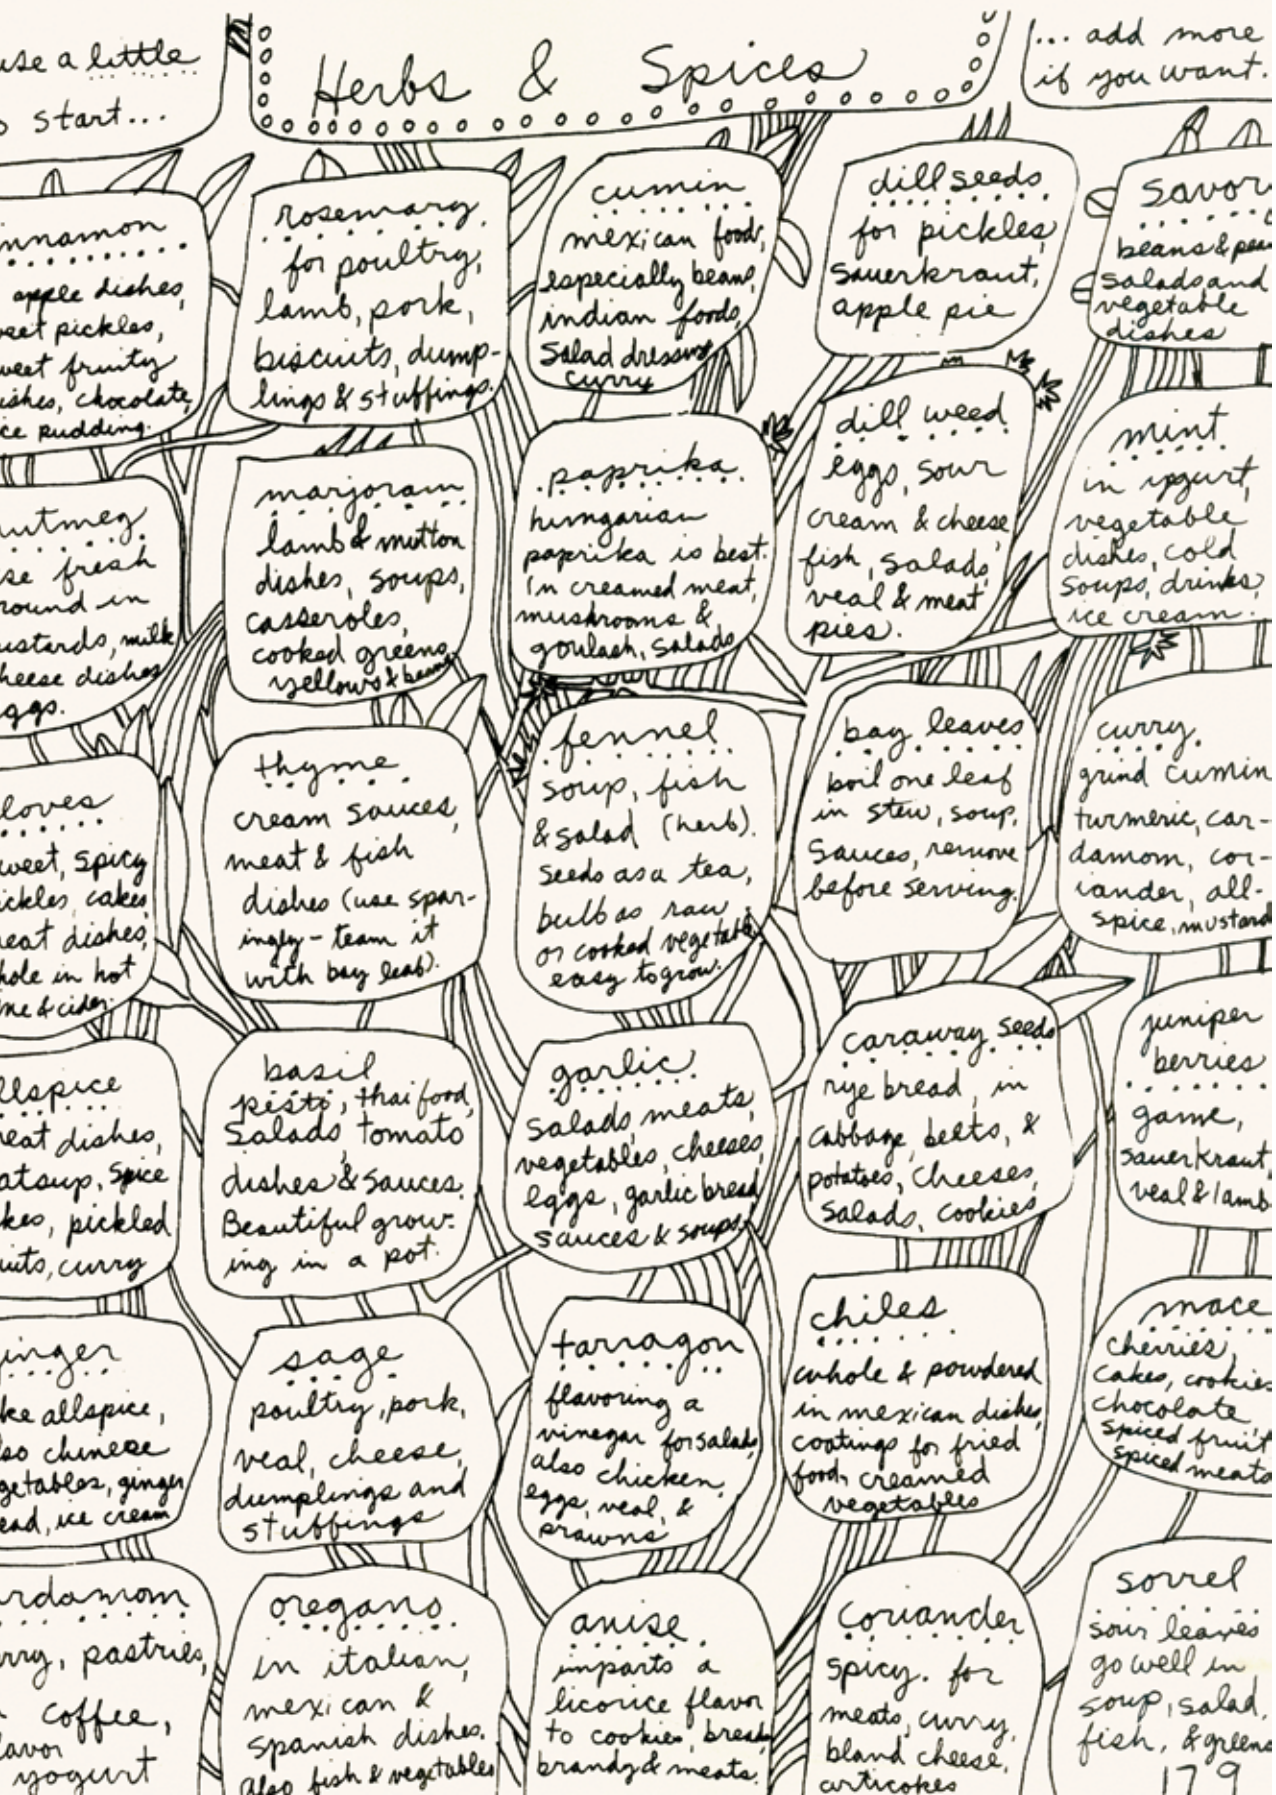 use a little
start...
Herbs & Spices
... add more
if you want.
innamon
apple dishes,
eet pickles,
weet fruity
ishes, chocolate,
ce pudding.
utmeg
se fresh
round in
ustards, milk
heese dishes
ggs.
loves
weet, spicy
ickles, cakes,
eat dishes,
hole in hot
ne & cider.
llspice
eat dishes,
atsup, spice
kes, pickled
uits, curry
inger
ke allspice,
lso chinese
getables, ginger
ead, ice cream
rdamom
rry, pastries,
coffee,
lavor
yogurt
rosemary
for poultry,
lamb, pork,
biscuits, dump-
lings & stuffings.
marjoram
lamb & mutton
dishes, soups,
casseroles,
cooked greens,
yellows & beans
thyme
cream sauces,
meat & fish
dishes (use spar-
ingly - team it
with bay leaf).
basil
pesto, thai food,
salads, tomato
dishes & sauces.
Beautiful grow-
ing in a pot.
sage
poultry, pork,
veal, cheese,
dumplings and
stuffings
oregano
in italian,
mexican &
spanish dishes.
Also fish & vegetables
cumin
mexican food,
especially beans,
indian foods,
salad dressing
curry
paprika
hungarian
paprika is best.
in creamed meat,
mushrooms &
goulash, salads
fennel
soup, fish
& salad (herb).
seeds as a tea,
bulb as raw
or cooked vegetable
easy to grow.
garlic
salads, meats,
vegetables, cheeses,
eggs, garlic bread
sauces & soups
tarragon
flavoring a
vinegar for salads
also chicken,
eggs, veal, &
prawns
anise
imparts a
licorice flavor
to cookies, breads
brandy & meats.
dill seeds
for pickles,
sauerkraut,
apple pie
dill weed
eggs, sour
cream & cheese
fish, salads,
veal & meat
pies.
bay leaves
boil one leaf
in stew, soup,
sauces, remove
before serving.
caraway seeds
rye bread, in
cabbage, beets, &
potatoes, cheeses,
salads, cookies
chiles
whole & powdered
in mexican dishes,
coatings for fried
food, creamed
vegetables
coriander
spicy. for
meats, curry,
bland cheese,
articokes
savory
beans & peas
salads and
vegetable
dishes
mint
in yogurt,
vegetable
dishes, cold
soups, drinks,
ice cream.
curry
grind cumin
turmeric, car-
damom, cor-
iander, all-
spice, mustard
juniper
berries
game,
sauerkraut,
veal & lamb
mace
cherries,
cakes, cookies
chocolate
spiced fruit
spiced meats
sorrel
sour leaves
go well in
soup, salad,
fish, & greens
179